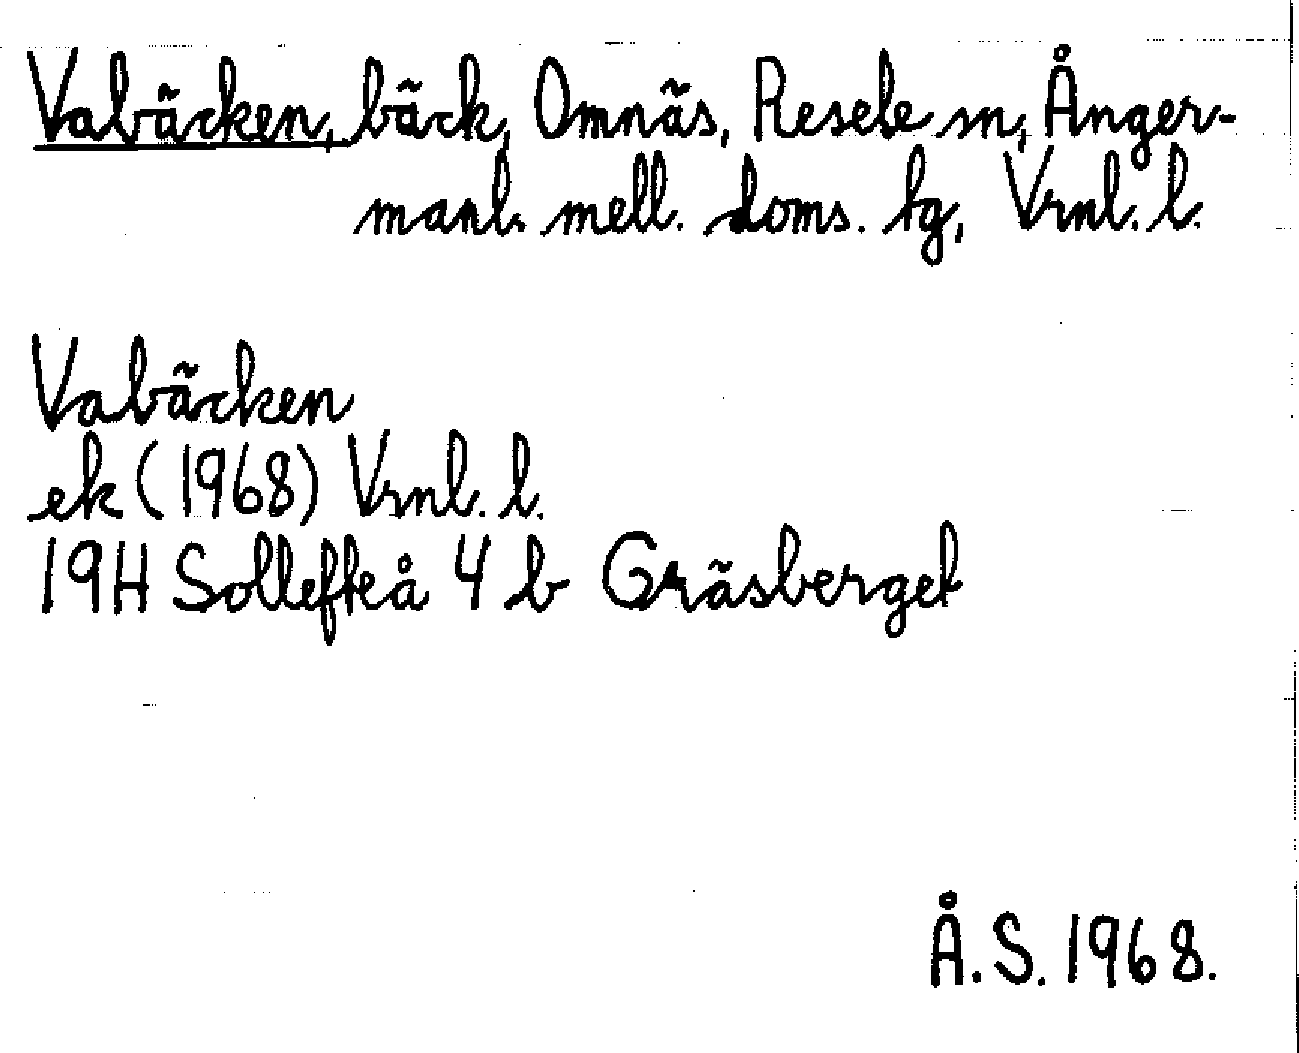 Vabäcken, bäck, Omnäs, Resele sn, Ånger-
manl. mell. doms. tg, Vrnl. l.
Vabäcken
ek (1968) Vrnl. l.
19H Sollefteå 4 b Gräsberget
Å.S. 1968.